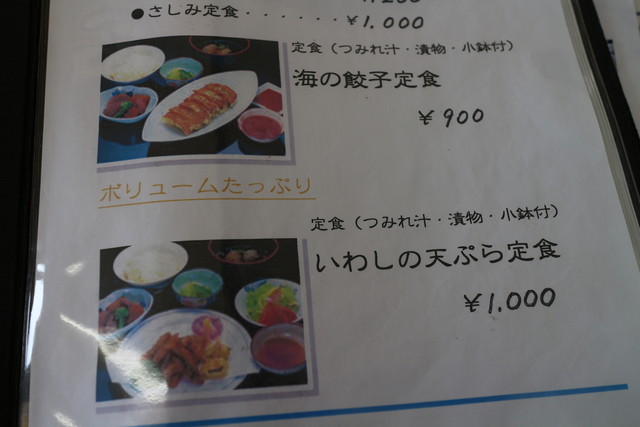 ●さしみ定食・・・・・・・¥1.000
定食（つみれ汁・漬物・小鉢付）
海の餃子定食
¥900
ボリュームたっぷり
定食（つみれ汁・漬物・小鉢付）
いわしの天ぷら定食
¥1.000